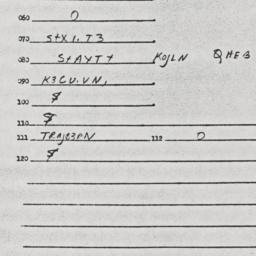 060 0
070 StX1.T3
080 StAYTT KOJLN QHEB
090 K3CU.VN,
100 $
110 $
111 112 0
120 $